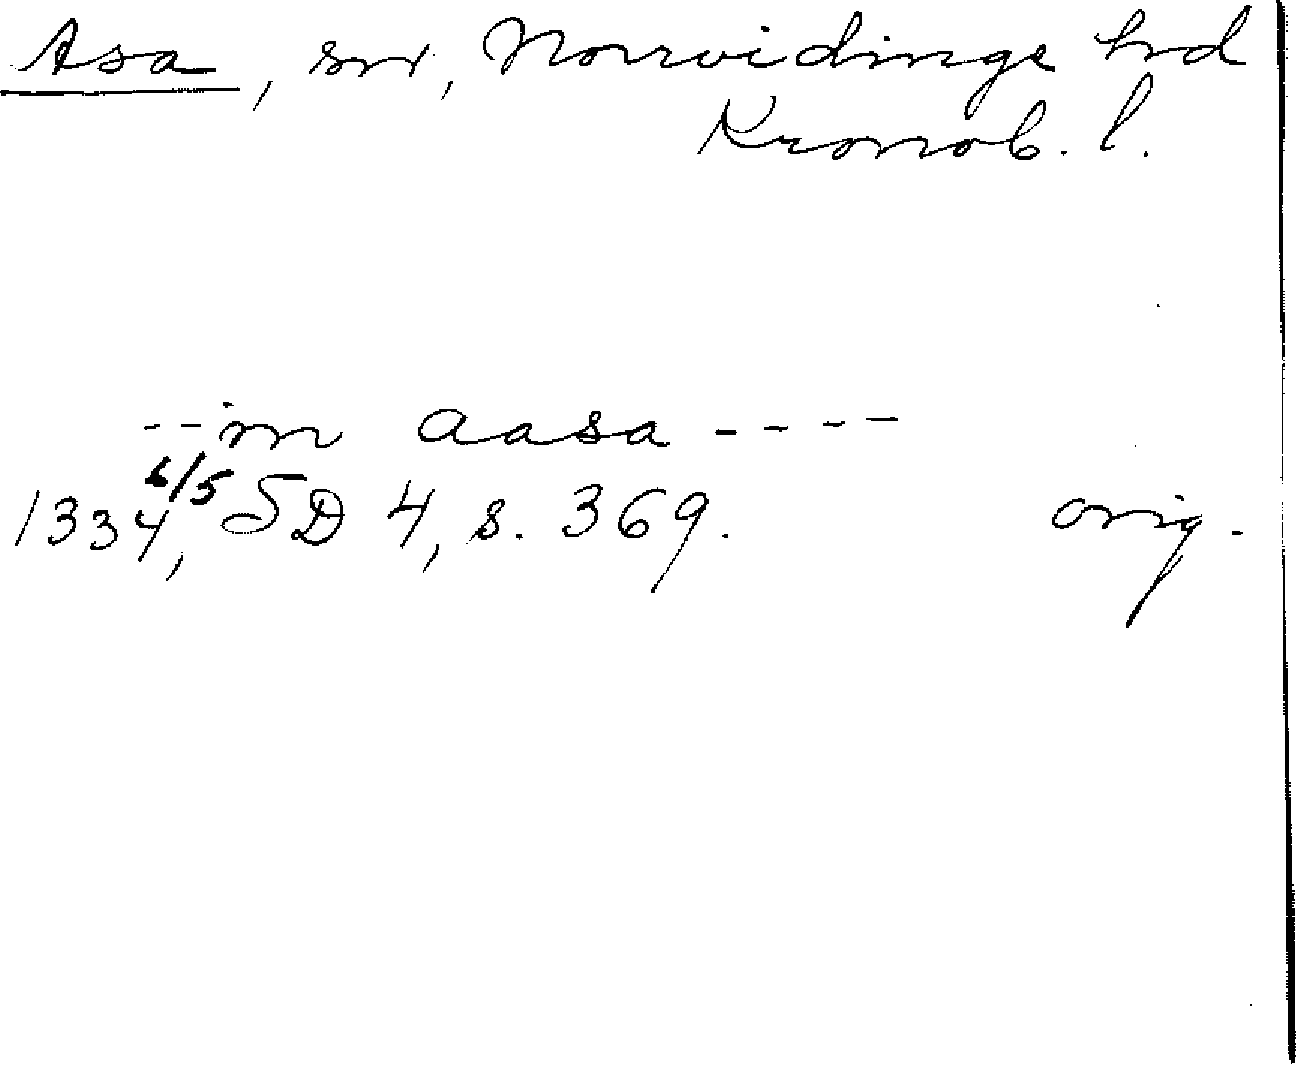 Asa, sn, Norrvidinge hd
Kronob. l.
-- in aasa ----
1334, 6/5 SD 4, s. 369. orig.